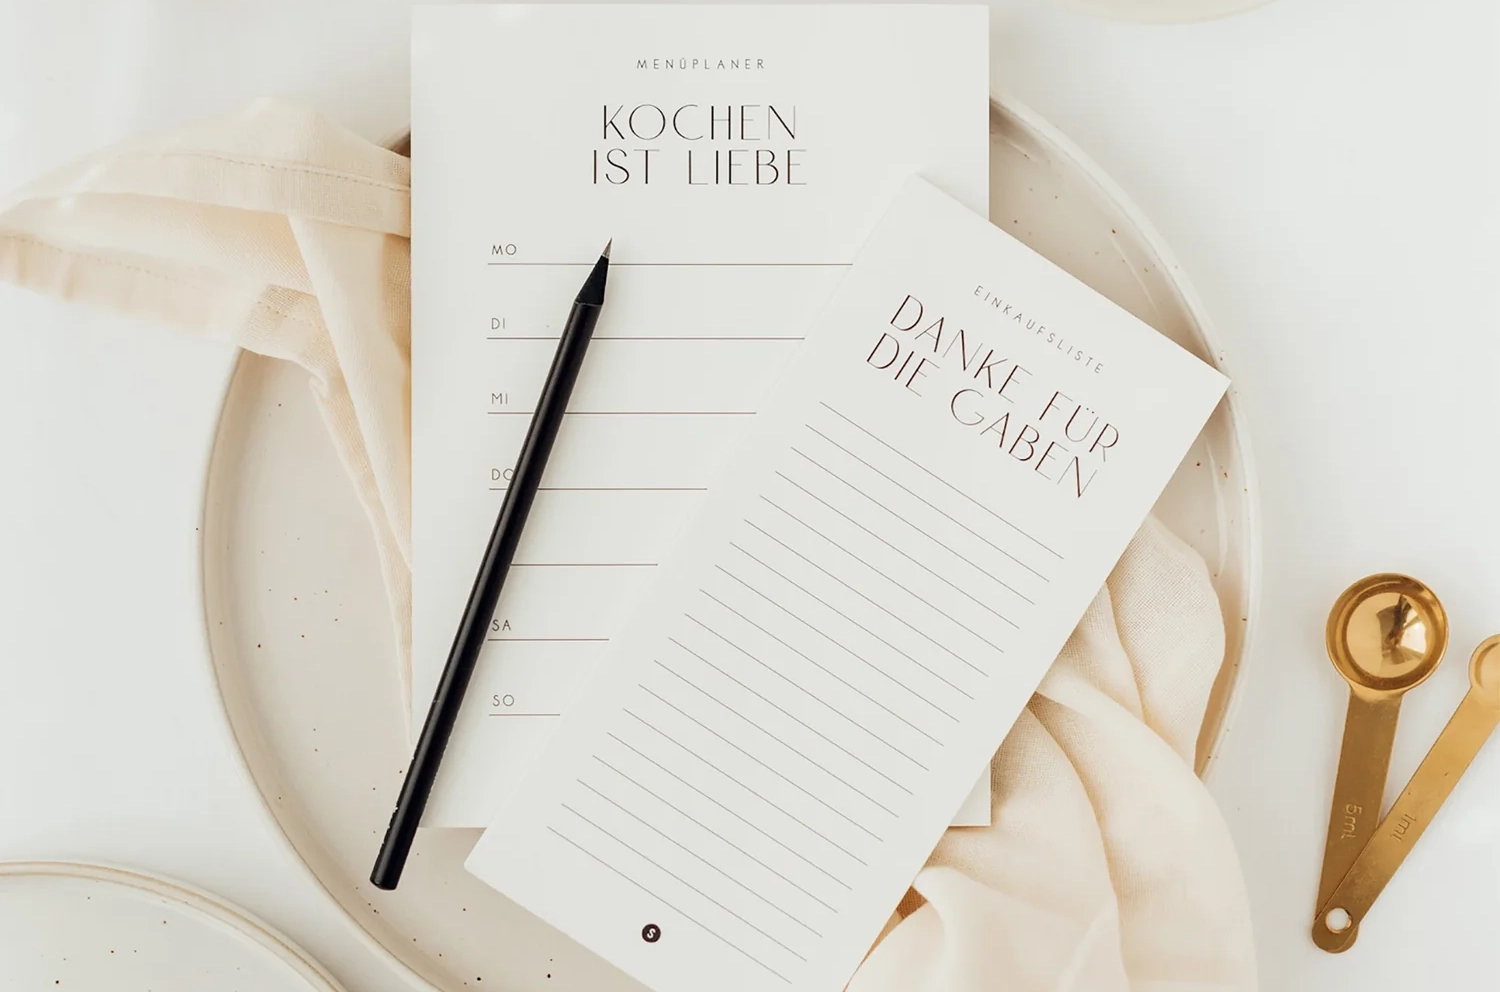 MENÜPLANER
KOCHEN
IST LIEBE
MO
DI
MI
DO
SA
SO
EINKAUFSLISTE
DANKE FÜR
DIE GABEN
S
5ml
1ml